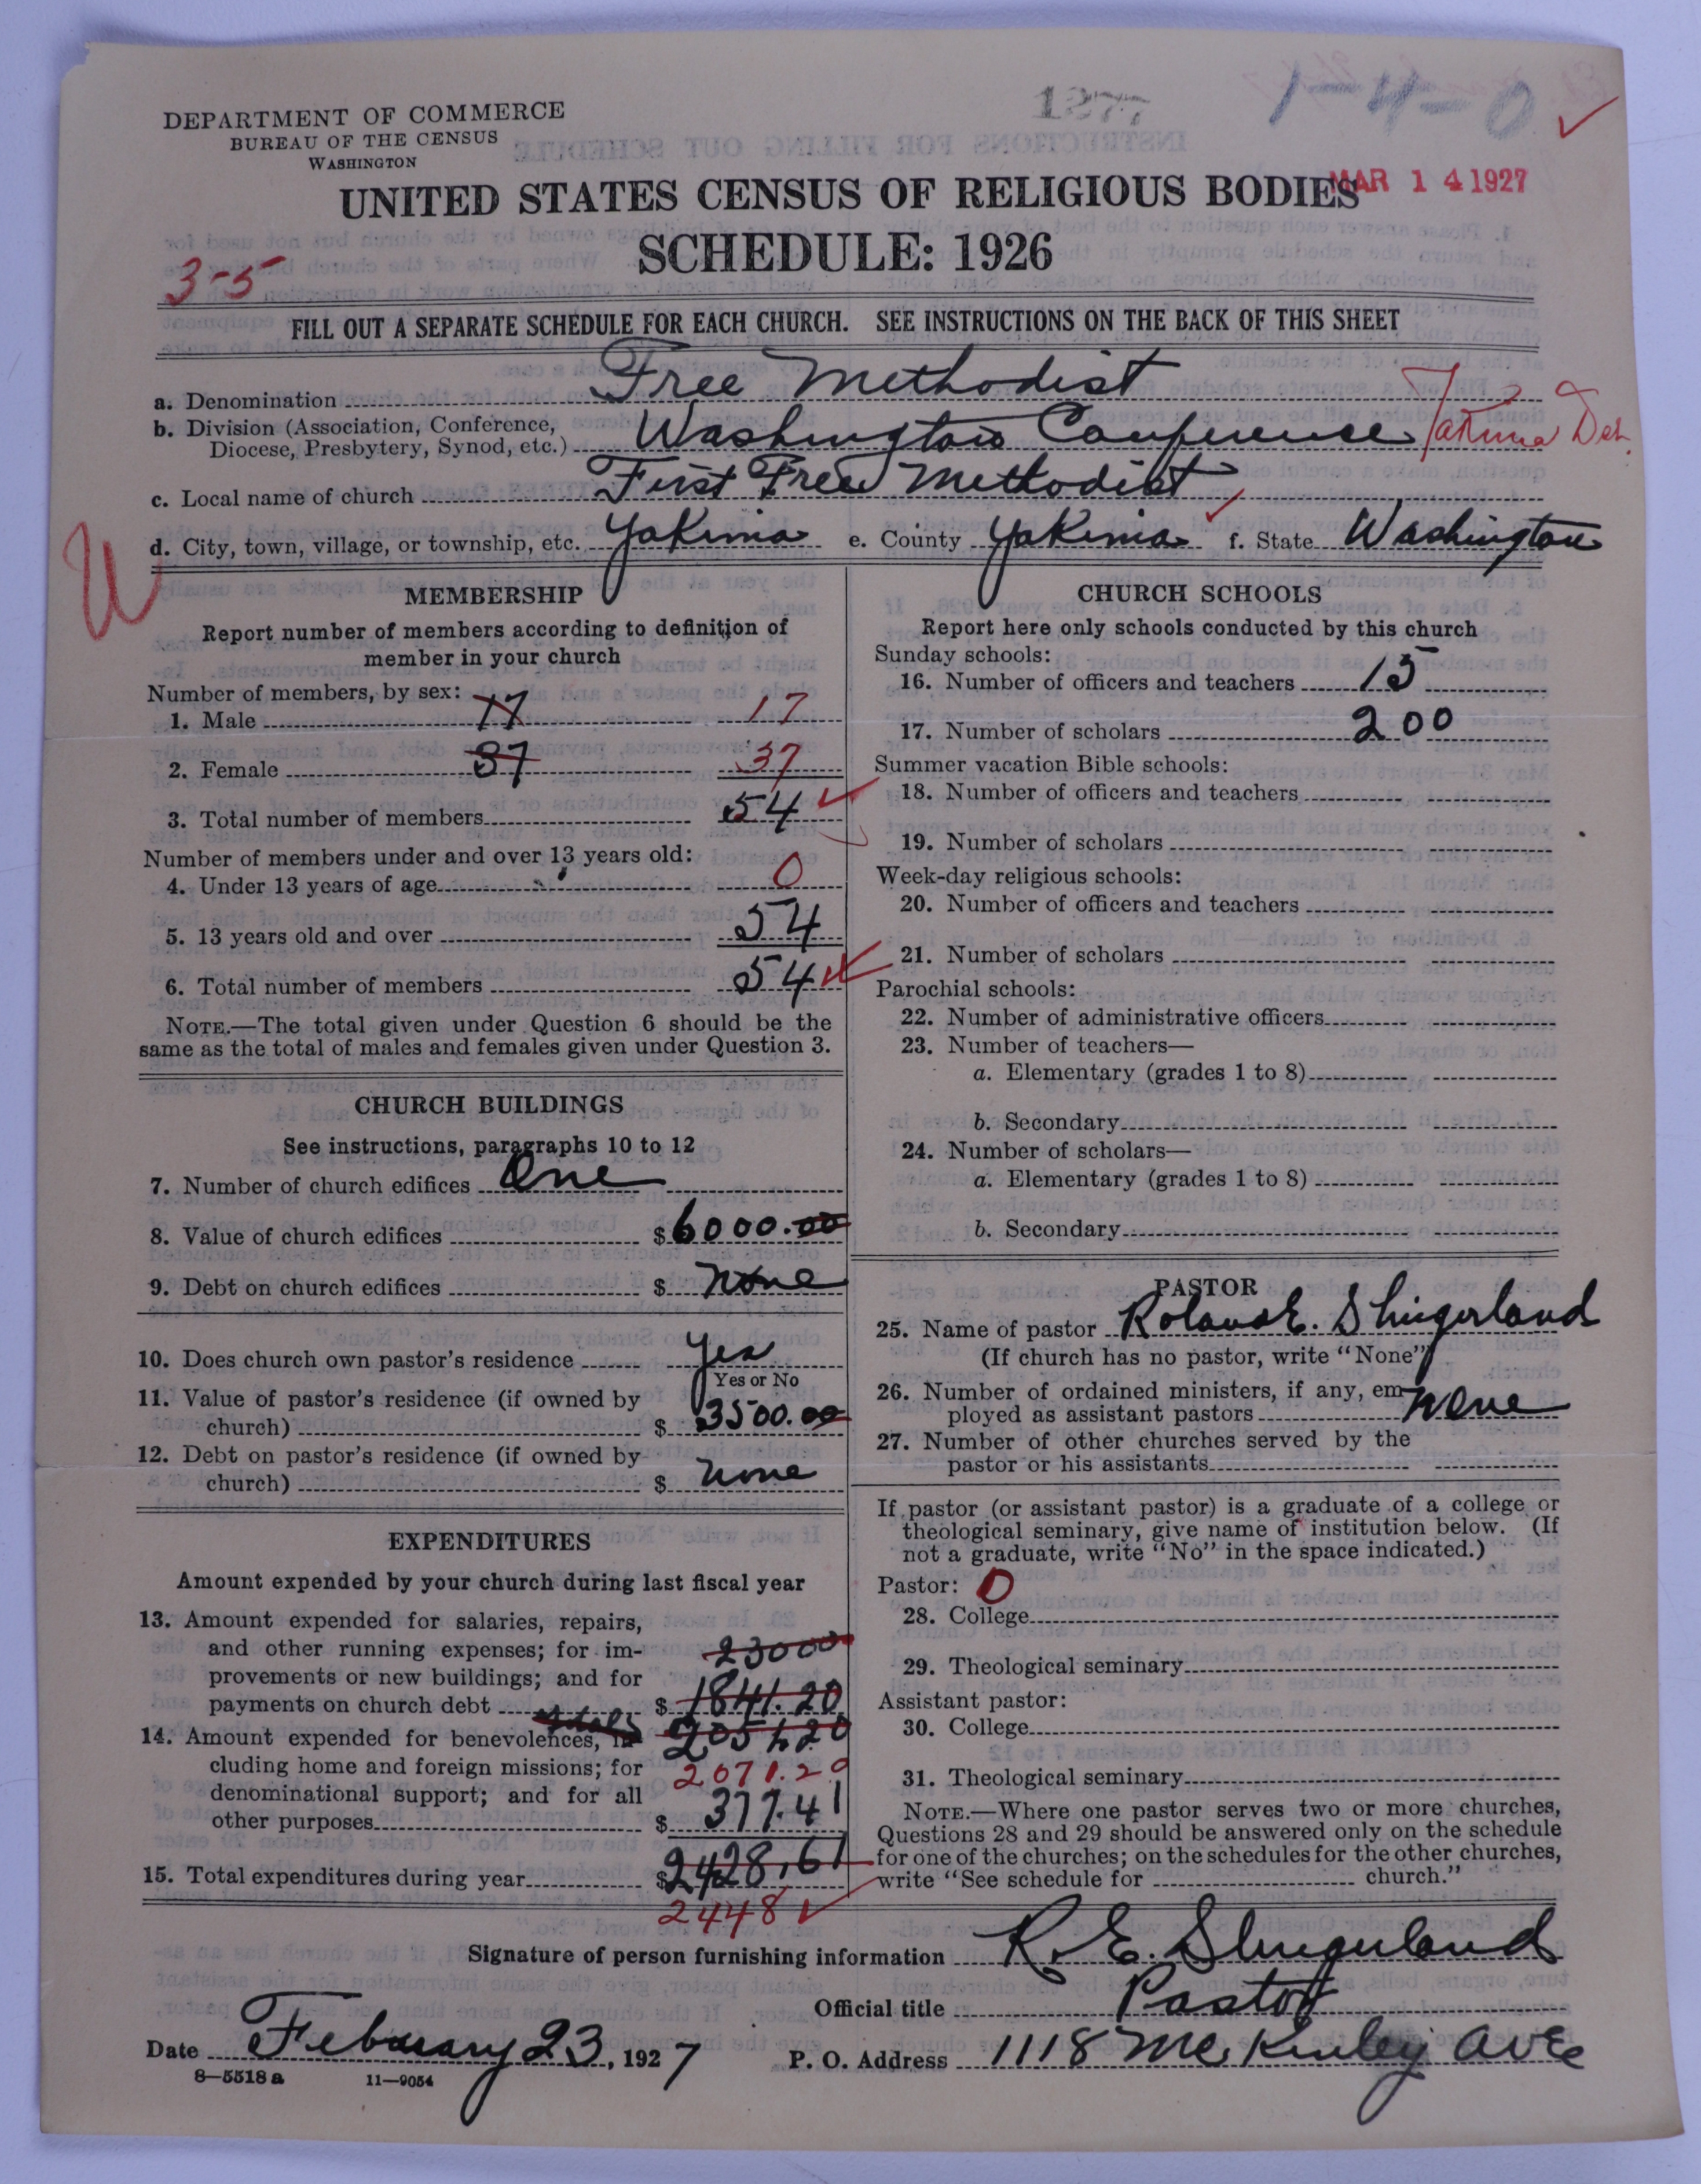 1277
1-4-0
DEPARTMENT OF COMMERCE
BUREAU OF THE CENSUS
WASHINGTON
MAR 14 1927
UNITED STATES CENSUS OF RELIGIOUS BODIES
SCHEDULE: 1926
3-5
FILL OUT A SEPARATE SCHEDULE FOR EACH CHURCH. SEE INSTRUCTIONS ON THE BACK OF THIS SHEET
a. Denomination Free Methodist
b. Division (Association, Conference, Diocese, Presbytery, Synod, etc.) Washington Conference Yakima
c. Local name of church First Free Methodist
d. City, town, village, or township, etc. Yakima e. County Yakima f. State Washington
W
MEMBERSHIP
Report number of members according to definition of
member in your church
Number of members, by sex:
1. Male 17 17
2. Female 37 37
3. Total number of members 54
Number of members under and over 13 years old:
4. Under 13 years of age 0
5. 13 years old and over 54
6. Total number of members 54
NOTE.—The total given under Question 6 should be the
same as the total of males and females given under Question 3.
CHURCH BUILDINGS
See instructions, paragraphs 10 to 12
7. Number of church edifices One
8. Value of church edifices $ 6000.00
9. Debt on church edifices $ None
10. Does church own pastor's residence Yes
Yes or No
11. Value of pastor's residence (if owned by
church) $ 3500.00
12. Debt on pastor's residence (if owned by
church) $ None
EXPENDITURES
Amount expended by your church during last fiscal year
13. Amount expended for salaries, repairs,
and other running expenses; for im- 23000
provements or new buildings; and for
payments on church debt $ 1841.20
total
14. Amount expended for benevolences, in-
cluding home and foreign missions; for 2071.20
denominational support; and for all
other purposes $ 377.41
15. Total expenditures during year $ 2428.61
2448
CHURCH SCHOOLS
Report here only schools conducted by this church
Sunday schools:
16. Number of officers and teachers 15
17. Number of scholars 200
Summer vacation Bible schools:
18. Number of officers and teachers
19. Number of scholars
Week-day religious schools:
20. Number of officers and teachers
21. Number of scholars
Parochial schools:
22. Number of administrative officers
23. Number of teachers—
a. Elementary (grades 1 to 8)
b. Secondary
24. Number of scholars—
a. Elementary (grades 1 to 8)
b. Secondary
PASTOR
25. Name of pastor Roland E. Slingerland
(If church has no pastor, write "None")
26. Number of ordained ministers, if any, em-
ployed as assistant pastors None
27. Number of other churches served by the
pastor or his assistants
If pastor (or assistant pastor) is a graduate of a college or
theological seminary, give name of institution below. (If
not a graduate, write "No" in the space indicated.)
Pastor: 0
28. College
29. Theological seminary
Assistant pastor:
30. College
31. Theological seminary
NOTE.—Where one pastor serves two or more churches,
Questions 28 and 29 should be answered only on the schedule
for one of the churches; on the schedules for the other churches,
write "See schedule for church."
Signature of person furnishing information R. E. Slingerland
Official title Pastor
Date February 23, 1927 P. O. Address 1118 McKinley Ave
8—5518 a 11—9054